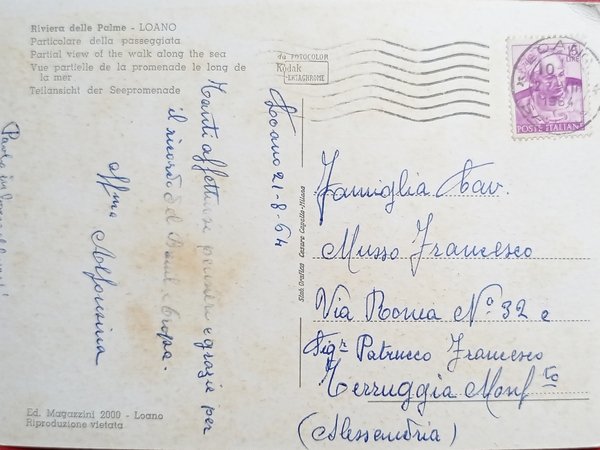 Riviera delle Palme - LOANO
Particolare della passeggiata
Partial view of the walk along the sea
Vue partielle de la promenade le long de
la mer
Teilansicht der Seepromenade
da FOTOCOLOR
Kodak
EKTACHROME
LOANO
POSTE ITALIANE
Loano 21-8-64
Tanti affettuosi pensieri e grazie per
il ricordo del
affma Alfonsina
Stab. Grafico Cesare Capello-Milano
Famiglia Cav.
Musso Francesco
Via Roma N° 32 e
Sigr Patrucco Francesco
Terruggia Monfto
(Alessandria)
Ed. Magazzini 2000 - Loano
Riproduzione vietata